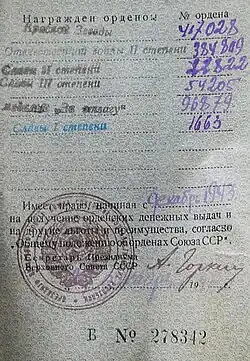 Награжден орденом: № ордена
Красной Звезды 717028
Отечественной войны II степени 384809
Славы II степени 22822
Славы III степени 54205
медаль "За отвагу" 96879
Славы I степени 1663
Имеет право, начиная с декабря 1943
на получение орденских денежных выдач и
на другие льготы и преимущества, согласно
„Общему положению об орденах Союза ССР".
Секретарь Президиума
Верховного Совета СССР А. Горкин
19 г.
В № 278342